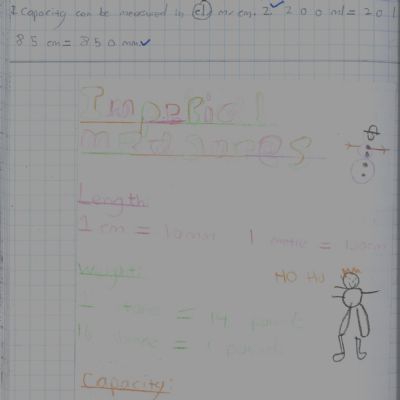 1 Capacity can be measured in cl m or cm. 2 200 ml = 20 l
85 cm = 850 mm
Imperial
measures
Length
1 cm = 10mm 1 metre = 100cm
Weight:
HO HO
1 tonne = 14 pounds
16 = 1 pounds
Capacity: